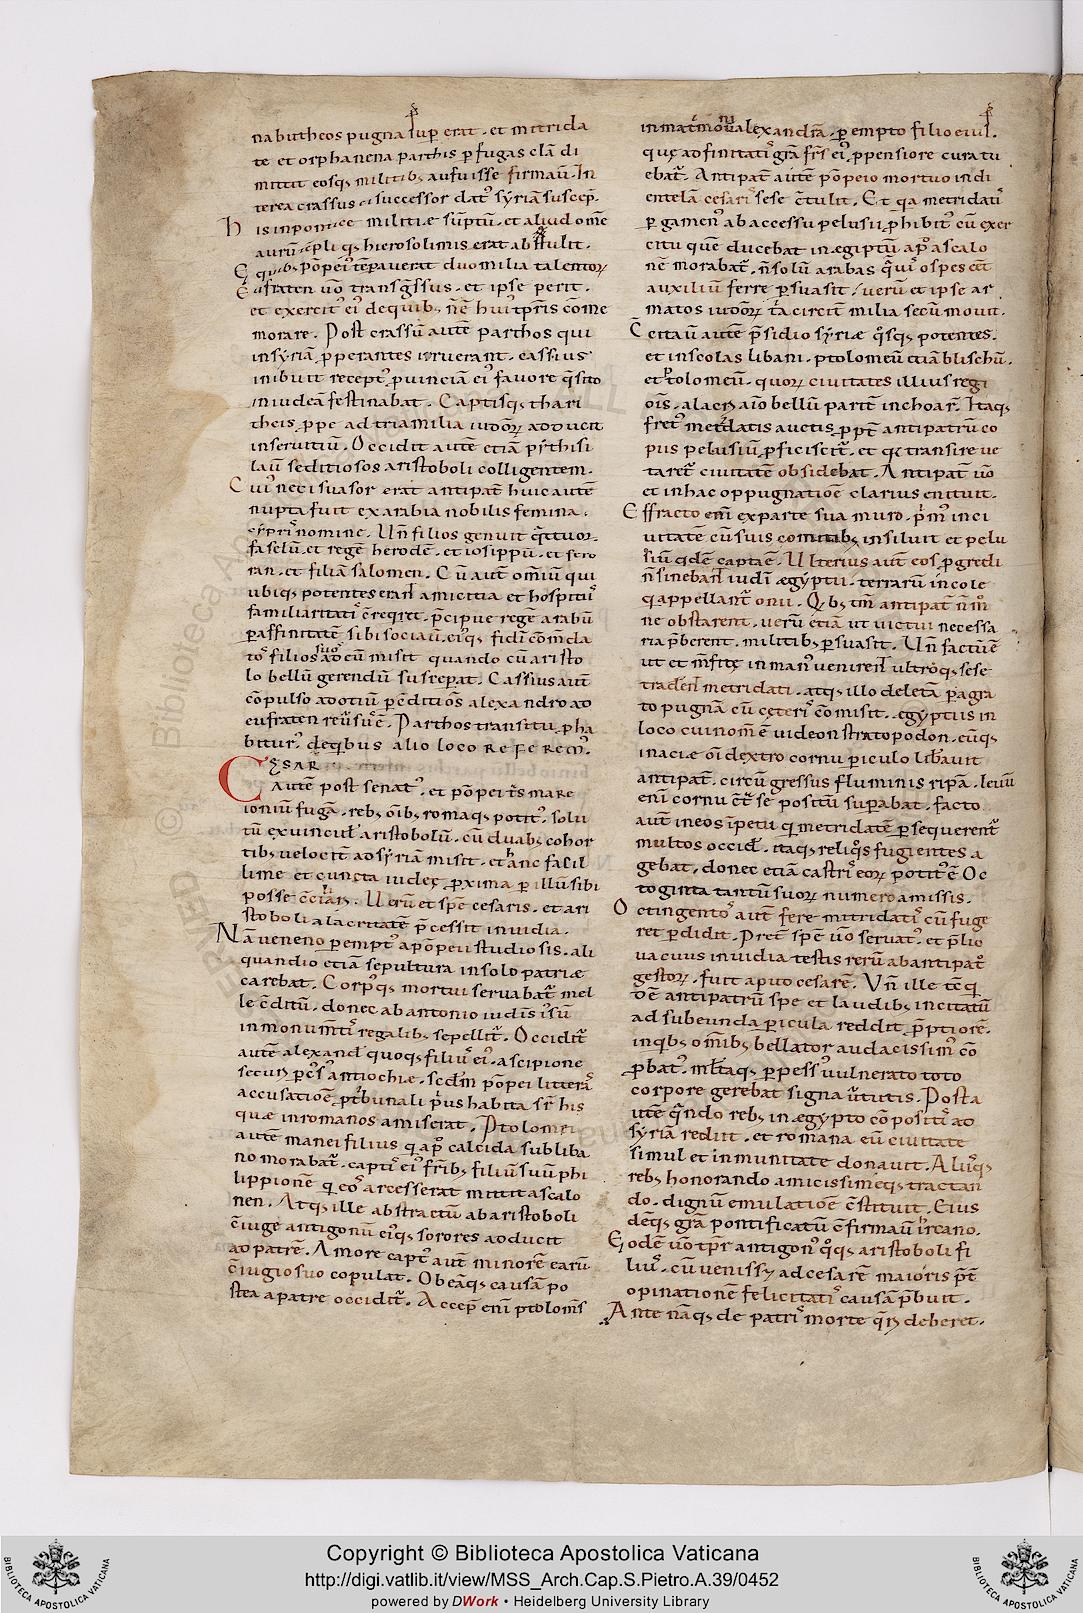 nabutheos pugna sup erat. et mitrida
te et orphanena parthis p̄fugas clā di
mittit eosq; militib; aufuisse firmaū. In
terea crassus ei successor dat᾽ syriā suscep̄.
his inpontice militiæ sūptū. et aliud om̄e
aurū tēpli q᷒ hierosolimis erat abstulit.
E quib; pōpei᾽ tēperauerat duo milia talentoꝝ
Eufraten uō transḡssus. et ipse perit.
et exercit᾽ ei᾽ de quib; n̄c hui᾽ tp̄ris cōme
morare. Post crassū autē parthos qui
insyriā p̄perantes irruerant. cassius
inibuit recept᾽ p̄uinciā ei᾽ fauore q̄sito
in iudeā festinabat. Captisq; thari
theis p̄pe ad tria milia iudōꝝ adduxit
inseruitiū. Occidit autē etiā pythisi
laū seditiosos aristoboli colligentem.
Cui᾽ neci suasor erat antipat᾽ huic autē
nupta fuit ex arabia nobilis femina.
cypri᾽ nomine. Un̄ filios genuit q̄ttuor.
faselū. et regē herodē. et iosippū. et fero
ran. et filiā salomen. Cū aut̄ omīū qui
ubiq; potentes eran̄t amicitia et hospitii᾽
familiaritati᾽ c̄reqret. p̄cipue regē arabū
p̄affinitatē sibi sociaū. ei᾽q; fidī cōmda
to᾽ filios suos ad eū misit quando cū aristo
lo bellū gerendū susceperat. Cassius aut̄
cōpulso ad otiū p̄ c̄ditiōs alexandro ad
eufraten reu᾽su᾽ ē. Parthos transitu p̄ha
bitur᾽ de q̄ibus alio loco REFEREM᾽.
CĘSAR
autē post senat᾽. et pōpei t̄s mare
ioniū fugā. reb; oīb; romaq; potit᾽. solu
tū ex uincul᾽ aristobolū. cū duab; cohor
tib; uelocit̄ ad syriā misit. et hanc facil
lime et cuncta iudeę p̄xima p̄ illū sibi
posse c̄ciari. Uerū et spē cesaris. et ari
stoboli alacritatē p̄cessit inuidia.
Nā ueneno p̄empt᾽ a pōpeii studiosis. ali
quandio etiā sepultura in solo patriæ
carebat. Corp᾽q; mortui seruabat̄ mel
le c̄ditū. donec ab antonio iudīs ip̄sū
in monum̄ti᾽ regalib; sepellit̄. Occidit̄
autē alexand᾽ quoq; filiu᾽ ei᾽. a scipione
securi p̄c᾽s᾽ antiochiæ. scdm̄ pōpei litterā᾽
accusatiōe p̄ t᾽bunali p᾽us habita sr̄ his
quæ in romanos amiserat. Ptolomei
autē manei filius q ap᾽ calcida sub liba
no morabat̄. capti᾽ ei᾽ frīb; filiū suū phi
lippionē q̄ eo᾽ arcesserat mittit ascalo
nen. Atq; ille abstractū ab aristoboli
c̄iuge antigonū ei᾽q; sorores adducit
ad patrē. Amore capt᾽ aut̄ minorē earū
c̄iugio suo copulat. Ob eāq; causā po
stea a patre occidit̄. Accep̄ enī ptolom̄s
in mat᾽moniū alexandrā. p̄empto filio eiul᾽.
quę adfinitati᾽ grā frīs ei᾽ p̄pensiore cura tu
ebat̄. Antipat̄ autē pōpeio mortuo in di
entelā cesari᾽ sese c̄tulit. Et qa metridati᾽
p̄gamen᾽ ab accessu pelusii p̄hibit᾽ cū exer
citu quē ducebat in ægiptū. ap᾽ ascalo
nē morabat̄. n̄ solū arabas q̄ui᾽ ospes eēt
auxiliū ferre p̄suasit. uerū et ipse ar
matos iudōꝝ t̄a circit̄ milia secū mouit.
Ceitaū autē p̄sidio syriæ q̄sq; potentes.
et inscolas libani. ptolomeū etiā blischū.
et ptolomeū. quoꝝ ciuitates illius regi
oīs. alacrī aīo bellū partē inchoar̄. Itaq;
fret᾽ metridatis auctis p̄pt̄ antipatrū co
piis pelusiū p̄ficiscit̄. et qa transire ue
taret̄ ciuitatē obsidebat. Antipat̄ uō
et in hac oppugnatiōe clarius enituit.
Effracto enī ex parte sua muro. p᾽m᾽ inci
uitatē cū suis comitib; insiluit et pelu
siū qdē captaē. Ulterius aut̄ eos p̄gredi
n̄ sinebant̄ iudīi ægyptii. terrarū incole
q appellant̄ onii. Q᾽b; tm̄ antipat̄ n̄ m̊
ne obstarent. uerū etiā ut uictui necessa
ria p̄berent. militib; p̄suasit. Un̄ factuē
ut et mēfite in man᾽ uenirent̄ ultrōq; sese
traden̄t metridati. atq; illo deletā p̄agra
to pugnā cū ceteri᾽ cōmisit. egyptiis in
loco cui nom̄ ē uideonstratopodon. eūq;
in acie oī dextro cornu p̄iculo lib᾽auit
antipat̄. circūgressus fluminis ripā. leuū
enī cornu c̄t᾽ se positū sup̄abat. facto
aut̄ in eos īpetu q metridatē p̄sequerent̄
multos occid᾽. itaq; reliq̊s fugientes a
gebat. donec etiā castri᾽ eoꝝ potit᾽ ē Oc
toginta tantū suoꝝ numero amissis.
Octingento᾽ aut̄ fere mitridati᾽ cū fuge
ret p̄didit. Pret̄ spē uō seruat᾽. et p̄lio
ua cuus inuidia testis rerū ab antipat̄
gestoꝝ. fuit apud cesarē. Vn̄ ille tēq
oē antipatrū spe et laudib; incitatū
ad subeunda p̄icula reddit p̄ptiorē.
in q᾽b; om̄ib; bellator audacissim᾽ cō
p̄bat᾽. mltāq; p̄pess᾽ uulnerato toto
corpore gerebat signa ū᾽tutis. Posta
utē q̄ndo reb; in ægypto cōpositi᾽ ad
syriā rediit. et romana eū ciuitate
simul et inmunitate donauit. Aliis᾽q;
reb; honorando amicissimeq; tractan
do. dignū emulatiōe c̄stituit. Eius
dēq; grā pontificatū c̄firmaū hircano.
Eodē uō tp̄r antigon᾽ q̊q; aristoboli fi
liu᾽. cū ueniss; ad cesarē maioris p̄t̄
opinationē felicitati᾽ causā p̄buit.
Ante nāq; de patri᾽ morte q̄ri deberet.
Copyright © Biblioteca Apostolica Vaticana
http://digi.vatlib.it/view/MSS_Arch.Cap.S.Pietro.A.39/0452
powered by DWork • Heidelberg University Library
BIBLIOTECA APOSTOLICA VATICANA
BIBLIOTECA APOSTOLICA VATICANA